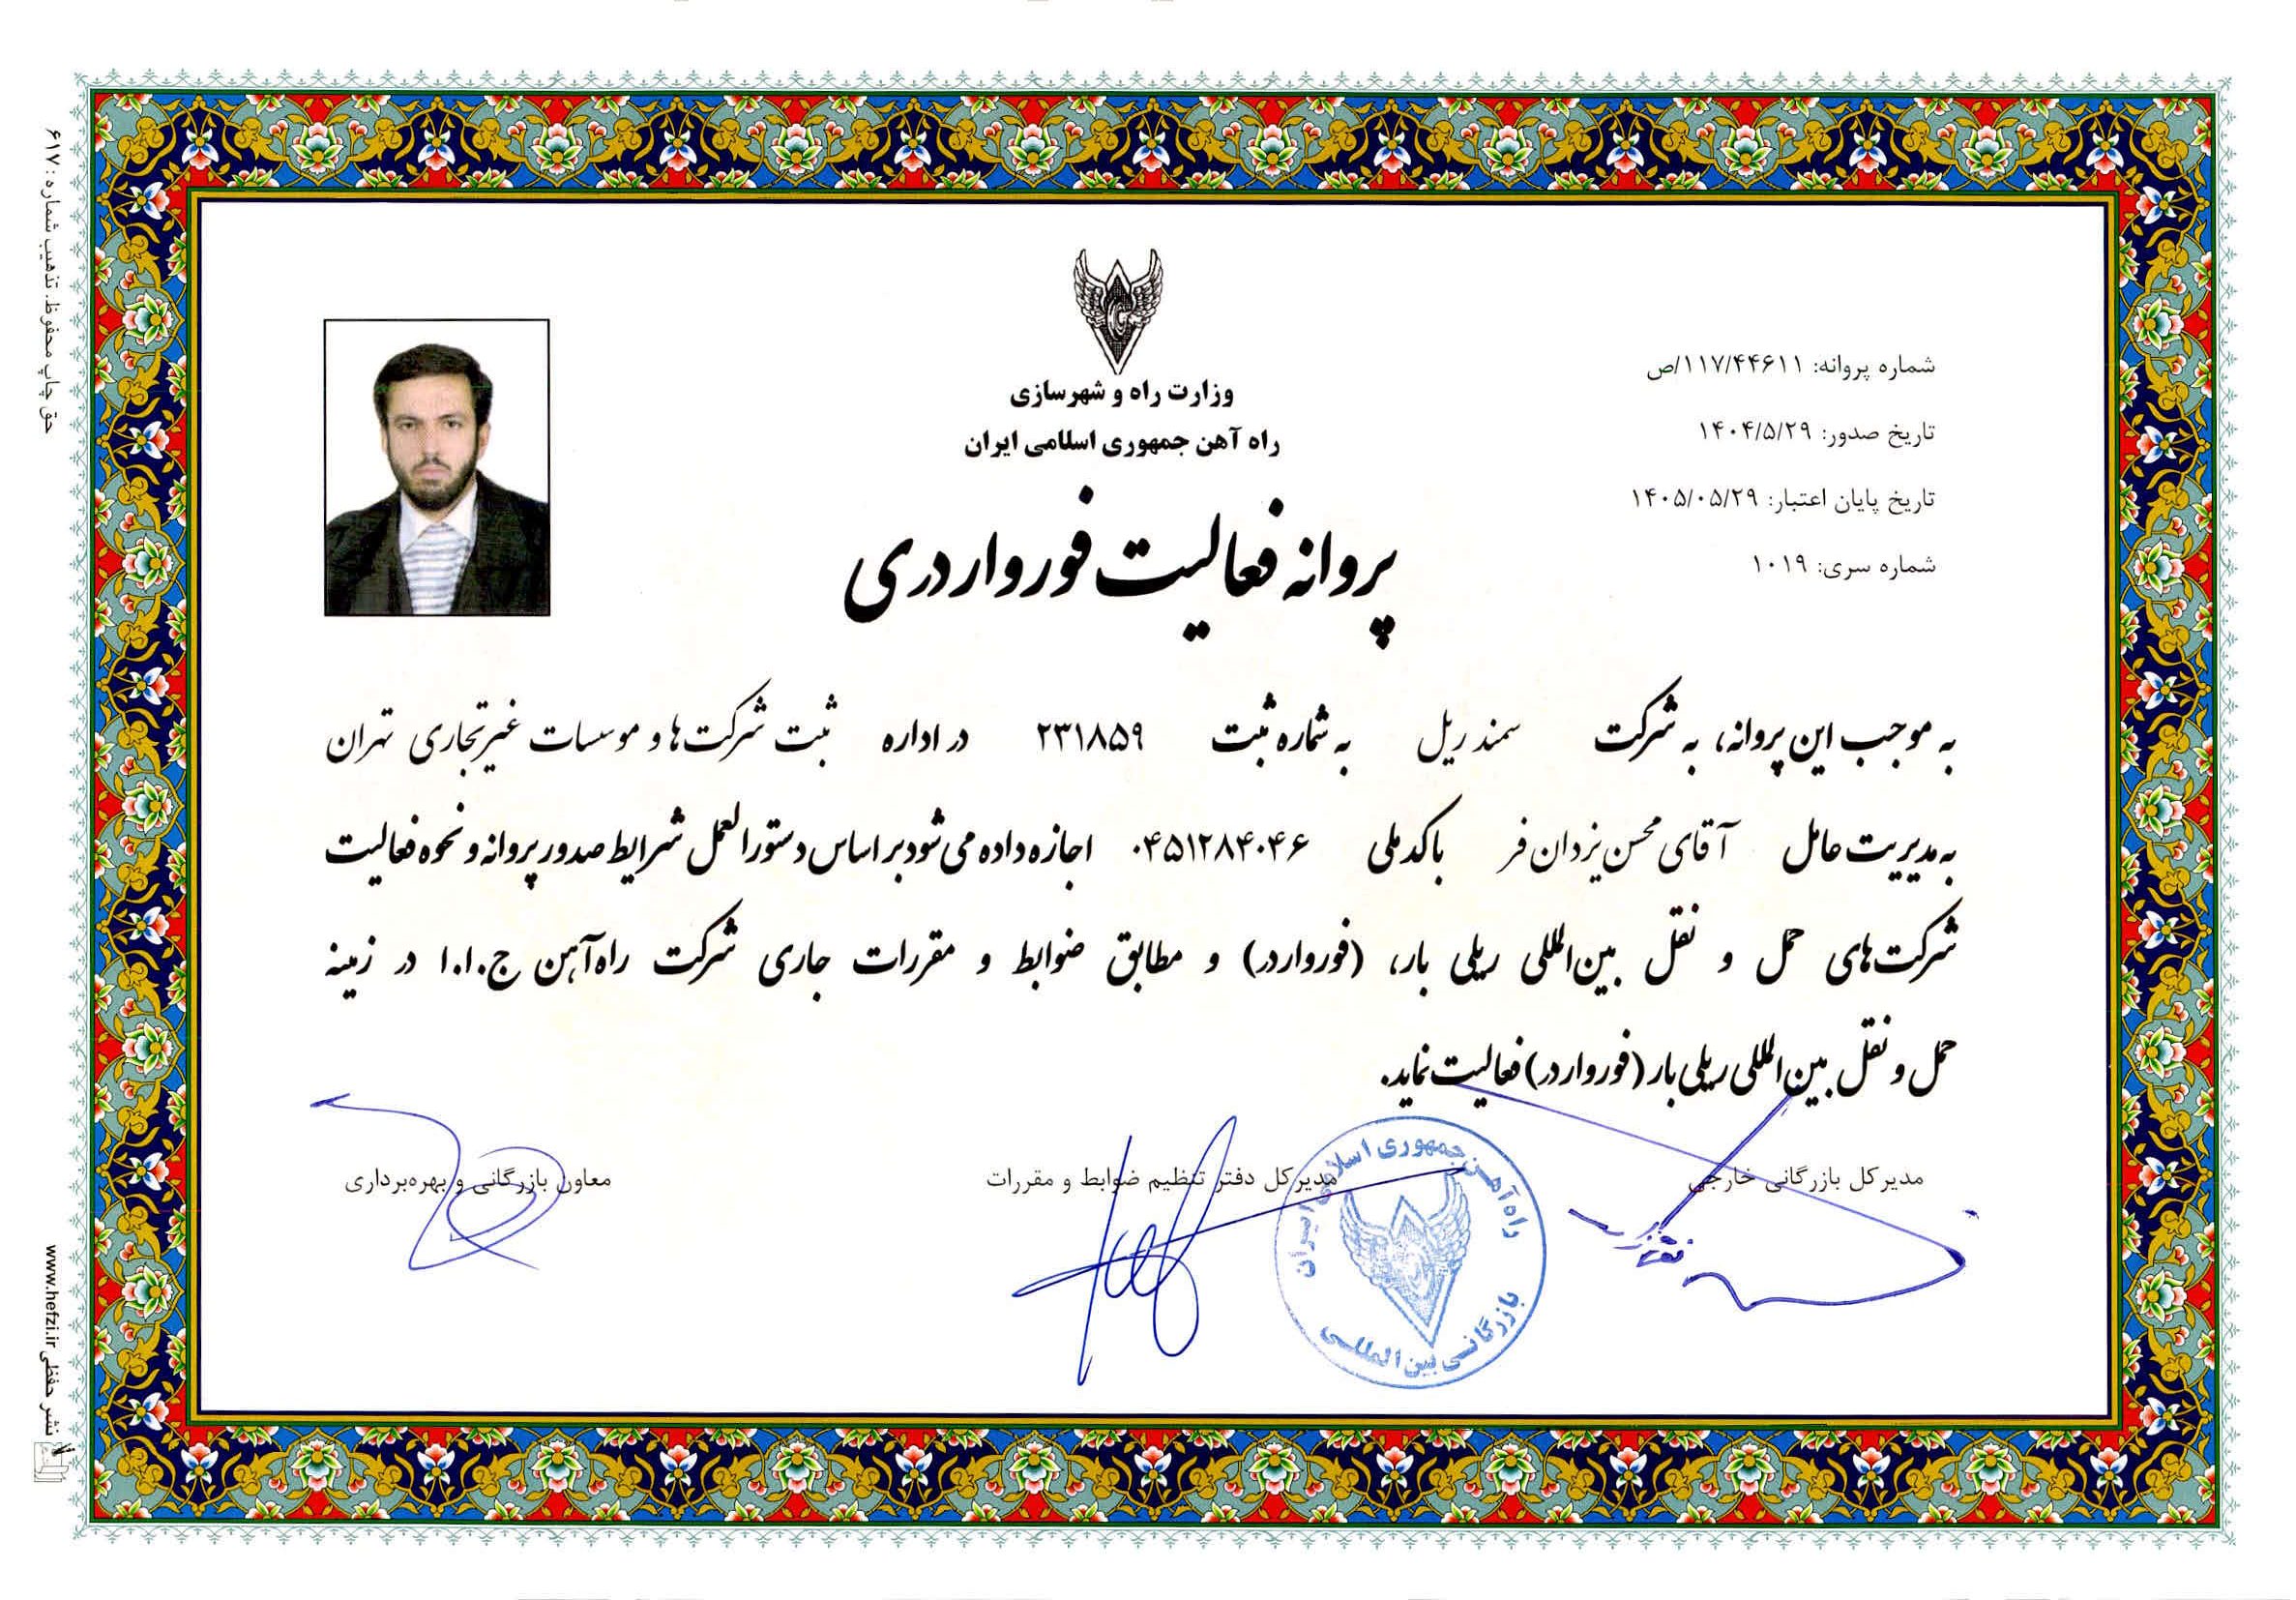 وزارت راه و شهرسازی
راه آهن جمهوری اسلامی ایران
شماره پروانه: ۱۱۷/۴۴۶۱۱/ص
تاریخ صدور: ۱۴۰۴/۵/۲۹
تاریخ پایان اعتبار: ۱۴۰۵/۰۵/۲۹
شماره سری: ۱۰۱۹
پروانه فعالیت فورواردری
به موجب این پروانه، به شرکت سمند ریل به شماره ثبت ۲۳۱۸۵۹ در اداره ثبت شرکت‌ها و موسسات غیرتجاری تهران
به مدیریت عامل آقای محسن یزدان فر با کد ملی ۰۴۵۱۲۸۴۰۴۶ اجازه داده می‌شود بر اساس دستورالعمل شرایط صدور پروانه و نحوه فعالیت
شرکت‌های حمل و نقل بین‌المللی ریلی بار، (فورواردر) و مطابق ضوابط و مقررات جاری شرکت راه‌آهن ج.ا.ا در زمینه
حمل و نقل بین‌المللی ریلی بار (فورواردر) فعالیت نماید.
مدیرکل بازرگانی خارجی
مدیرکل دفتر تنظیم ضوابط و مقررات
معاون بازرگانی و بهره‌برداری
راه آهن جمهوری اسلامی ایران
بازرگانی بین المللی
حق چاپ محفوظ. تذهیب شماره: ۶۱۷
نشر حفظی www.hefzi.ir